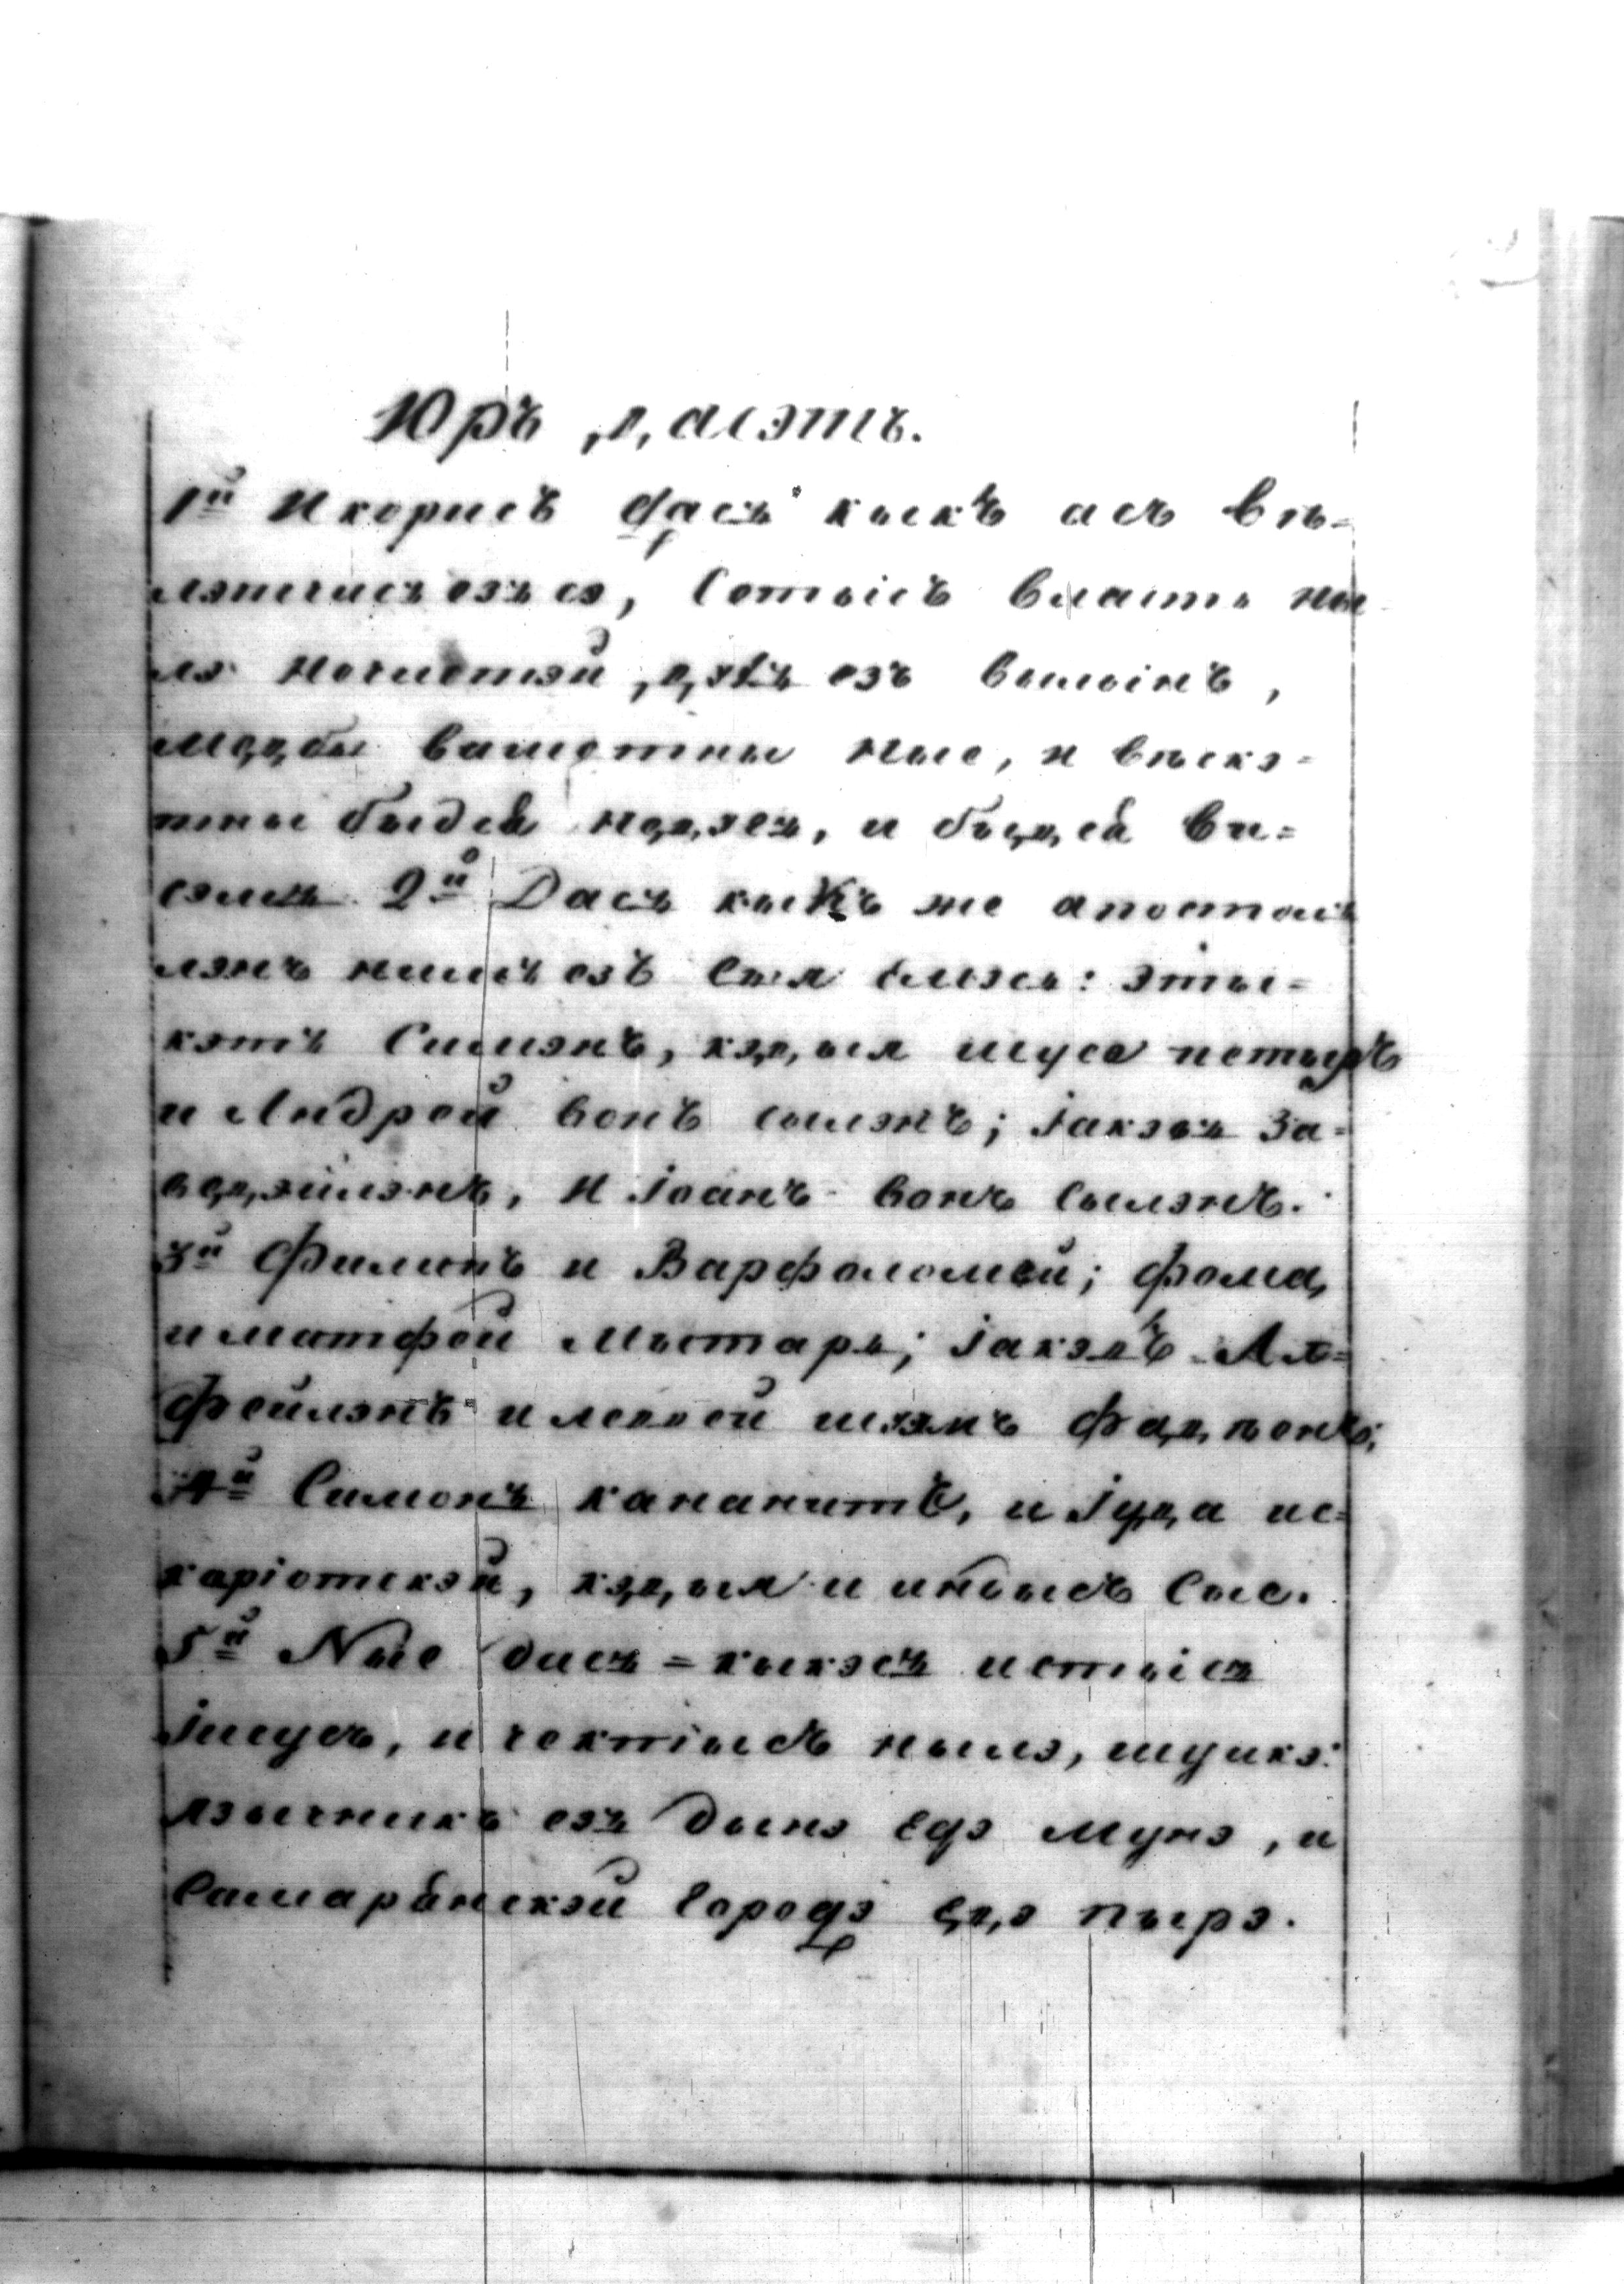 Юръ ,д, асэтъ.
1й Икорисъ дасъ кыкъ ас вѣ=
лэтчисьезъсэ, сотыісъ власть ны
лэ нечистэй ,д,эlъ езъ вылынъ,
мед,бы вашетны ные, и вѣскэ=
тны быдса нед,эсъ, и быд,са ви=
сэмъ 2й Дасъ кыкъ же апостол
лэнъ нимъ езъ сыя емэсь: эты=
кэтъ Симэнъ, кэд,ыя шусе петыръ
и Андрей вонъ сылэнъ; Іакэвъ За=
вед,эйлэнъ, И Іоанъ вонъ сылэнъ.
3й Филипъ и Варфоломей; фома,
и матфей Мытарь; Іакэвъ Ал=
фейлэнъ и левей шуэмъ фад,ѣонъ;
4й Симонъ кананитъ, и Іуд,а ис=
каріотскэй, кэд,ыя и сые.
5й Ные дасъ=кыкэсъ истыісъ
Іисусъ, и чектыісъ нылэ, шуикэ:
язычникъ езъ дынэ едэ мунэ, и
Самаранскэй городэ ед,э пырэ.